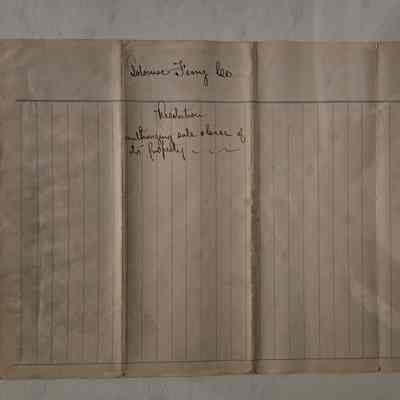 Ferry Co
Resolution
authorizing sale & lease of
its property